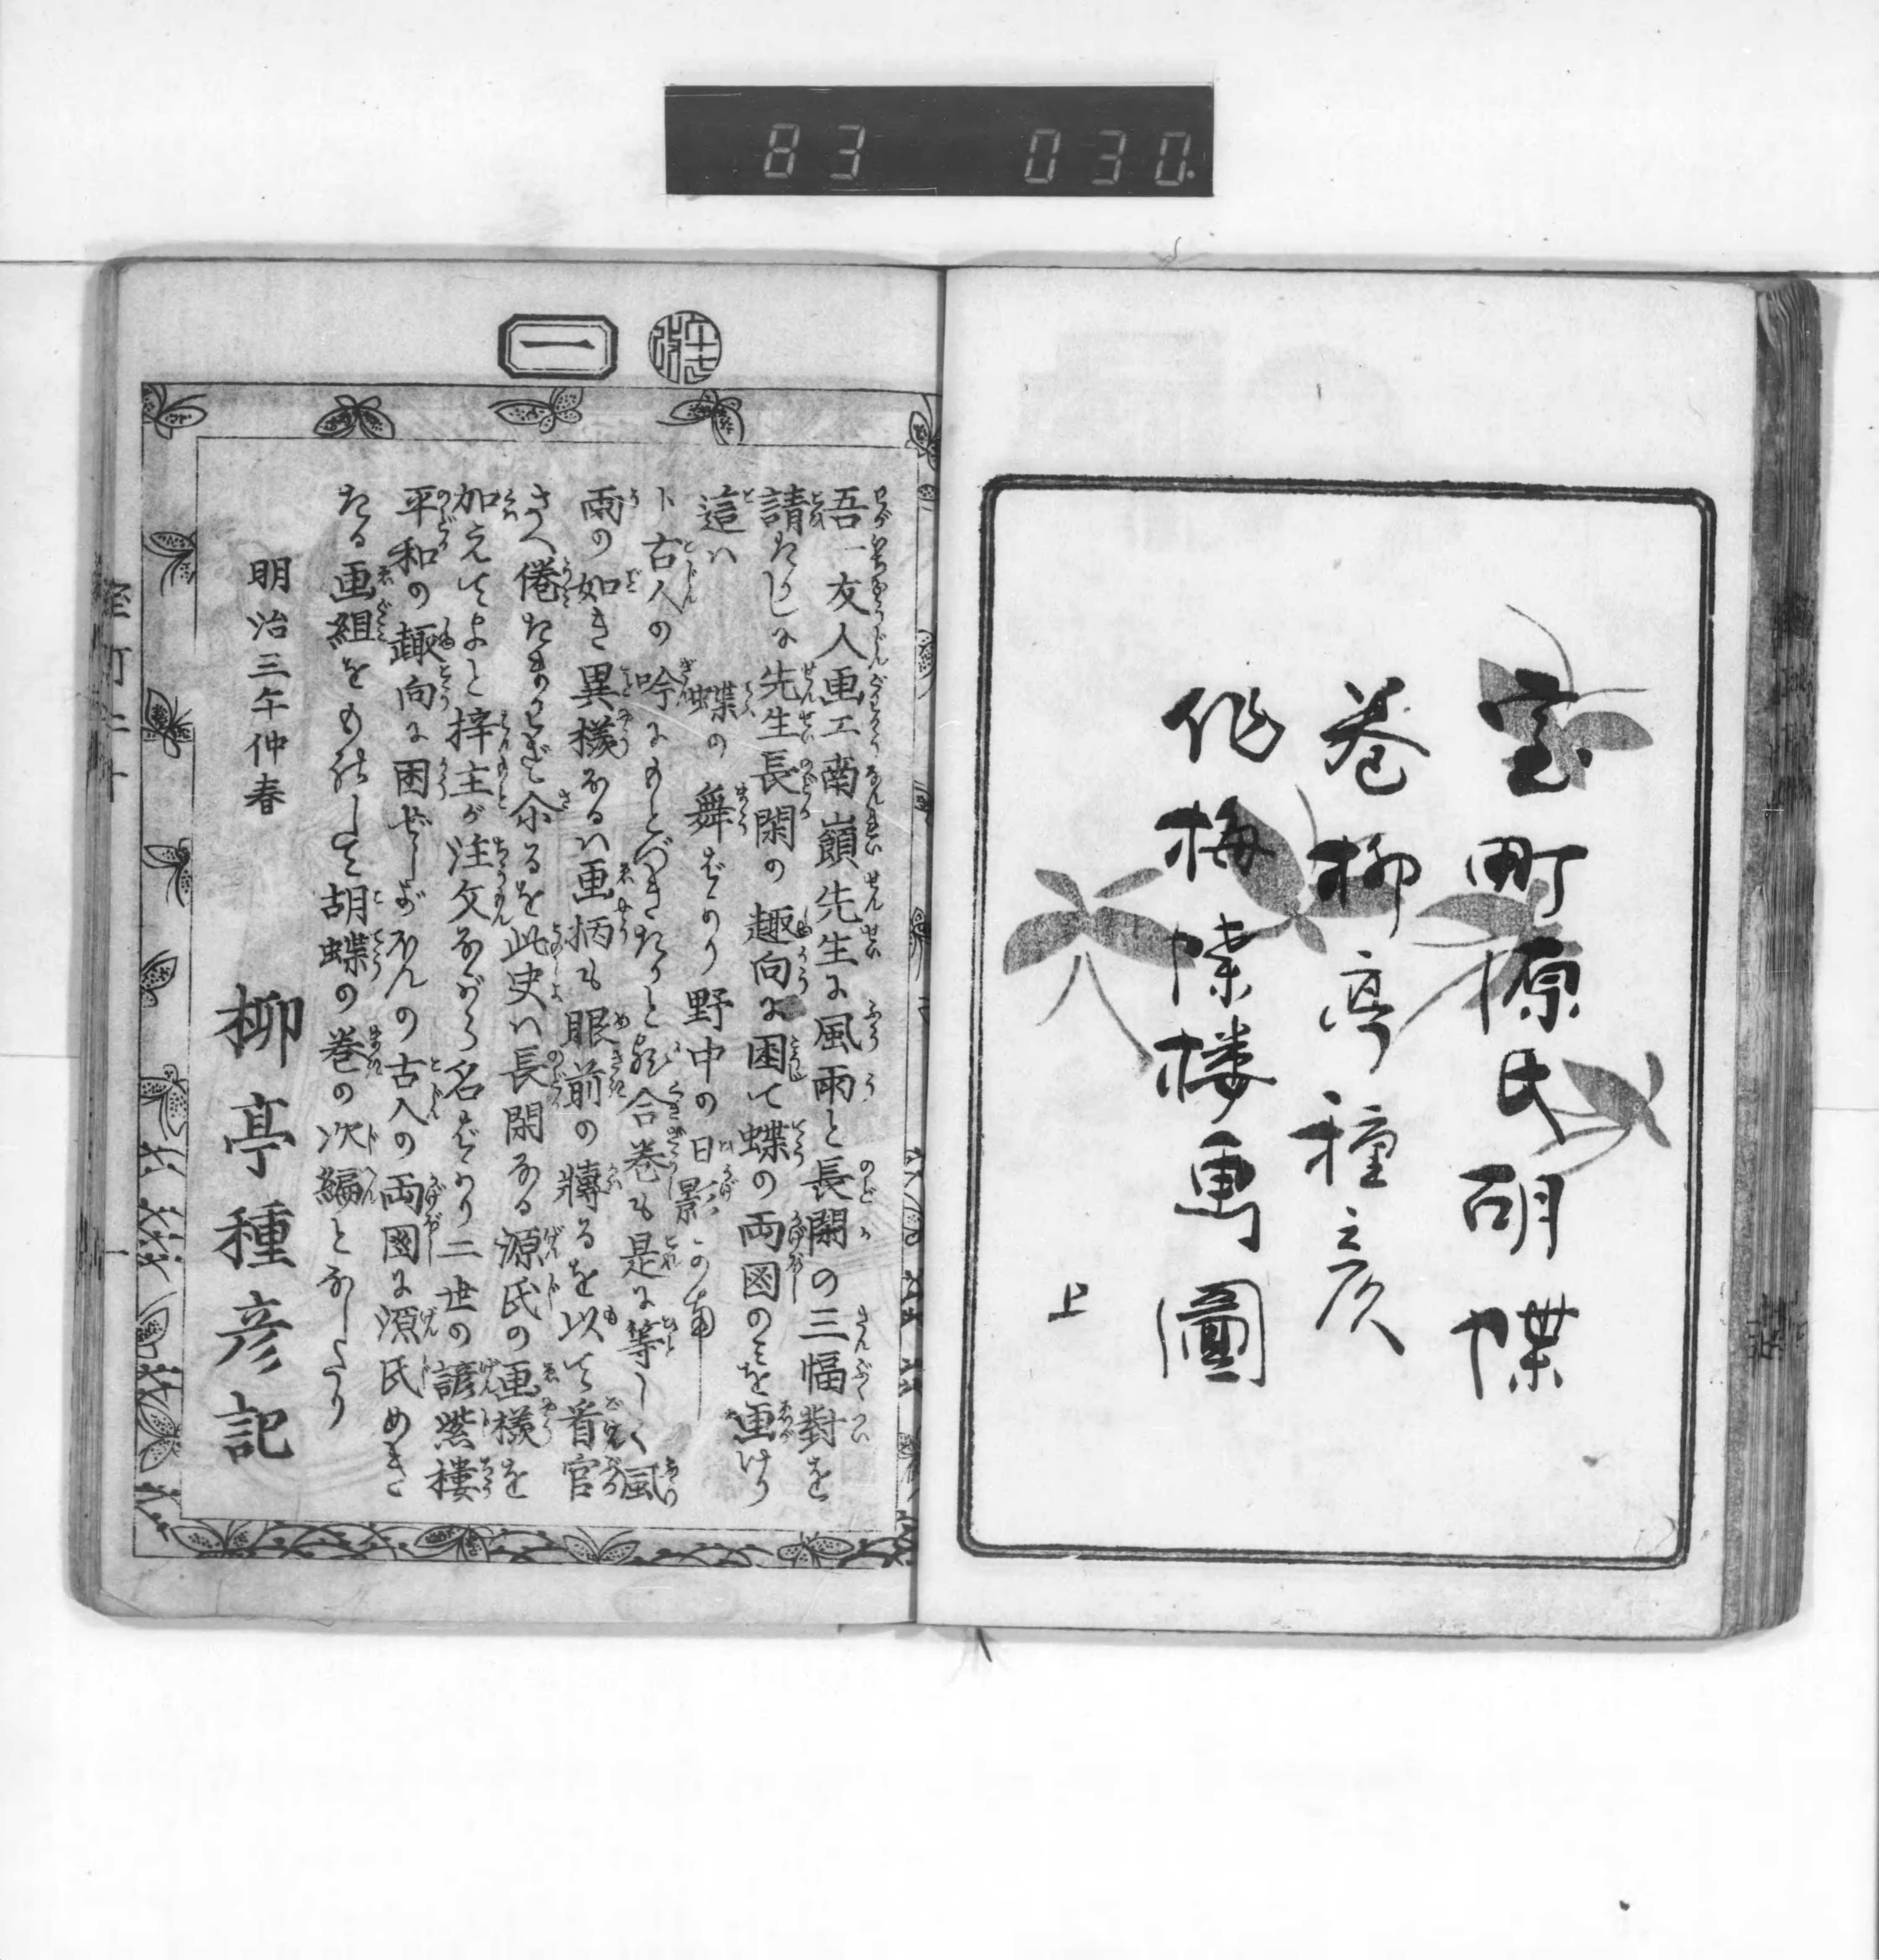 83 030
室町源氏胡蝶
巻 柳亭種彦
作 梅蝶楼画圖
上
一
吾一友人画工南嶺先生に風雨と長閑の三幅對を
請たりしに先生長閑の趣向に困て蝶の両図のみを画けり
這ハ 蝶の舞ばかり野中の日影かな
ト古人の吟にもとづきたりと 合巻も是に等しく風
雨の如き異様なるハ画柄も眼前の轉るを以て看官
さへ倦たまハらざ を此史ハ長閑なる源氏の画様を
加えてよと梓主が注文ながら名ばかり二世の諺紫楼
平和の趣向に困ぜしが の古人の両図に源氏めきた
たる画組をものして胡蝶の巻の次編となしたり
明治三午仲春
柳亭種彦記